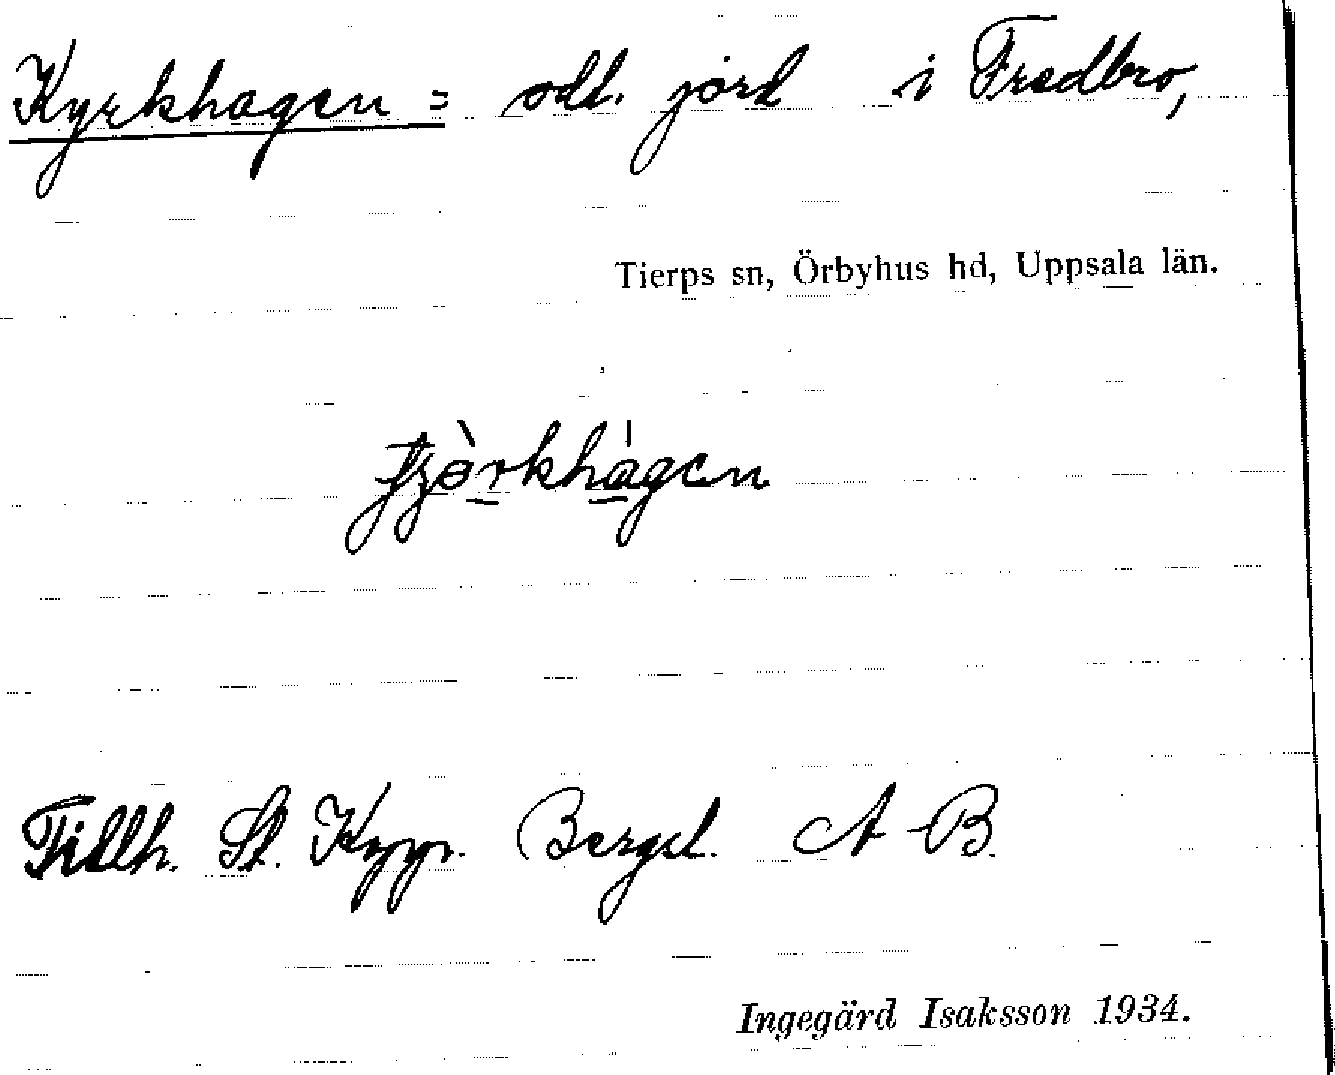 Kyrkhagen = odl. jord i Fredbro,
Tierps sn, Örbyhus hd, Uppsala län.
Tillh. St. Kopp. Bergsl. A-B.
Ingegärd Isaksson 1934.